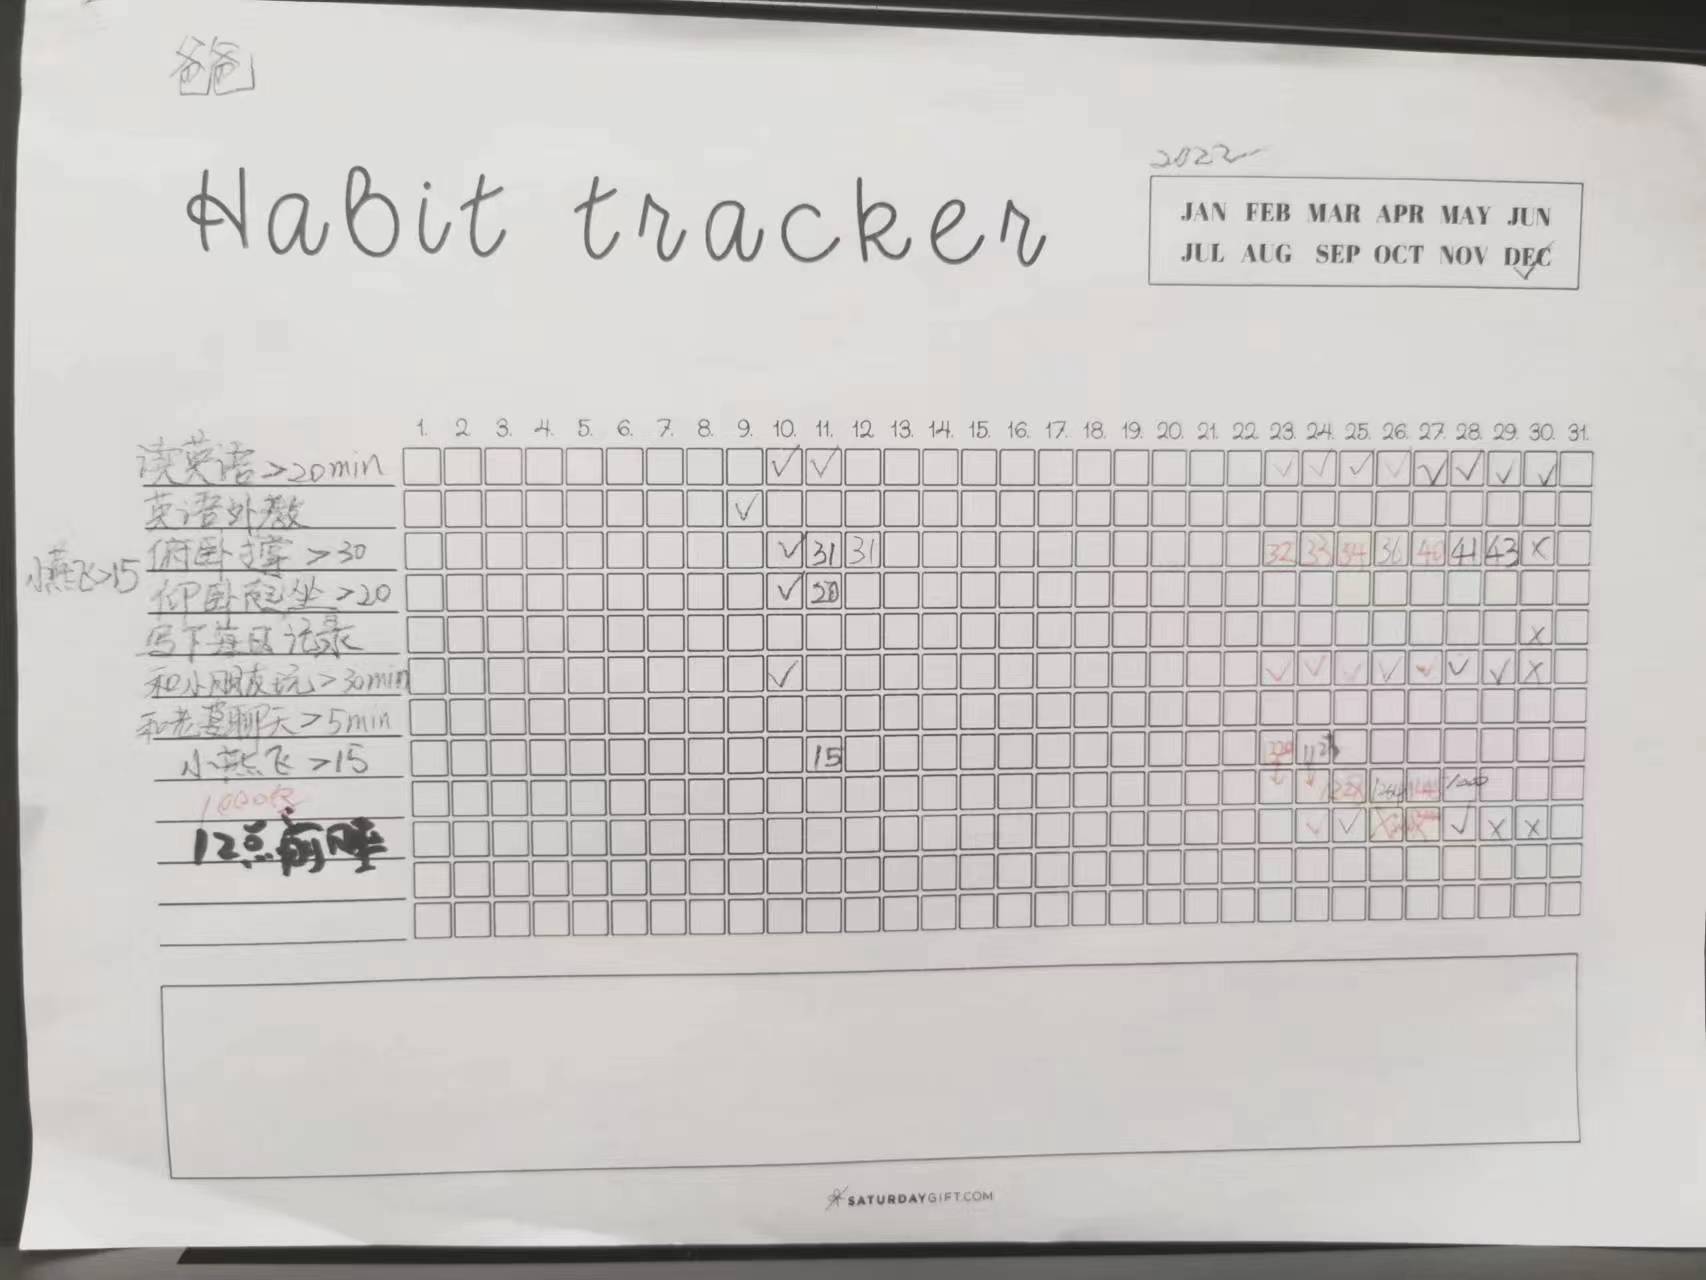 爸爸
Habit tracker
2022
JAN FEB MAR APR MAY JUN
JUL AUG SEP OCT NOV DEC
1. 2. 3. 4. 5. 6. 7. 8. 9. 10. 11. 12. 13. 14. 15. 16. 17. 18. 19. 20. 21. 22. 23. 24. 25. 26. 27. 28. 29. 30. 31.
读英语>20min ✓ ✓ ✓ ✓ ✓ ✓ ✓ ✓ ✓ ✓
英语外教 ✓
俯卧撑>30 ✓ 31 31 32 33 34 36 40 41 43 ×
小燕飞>15
仰卧起坐>20 ✓ 20
写下每日记录 ×
和小朋友玩>30min ✓ ✓ ✓ ✓ ✓ ✓ ✓ ✓ ×
和老婆聊天>5min
小燕飞>15 15
12点前睡 ✓ ✓ ✓ × ×
SATURDAYGIFT.COM